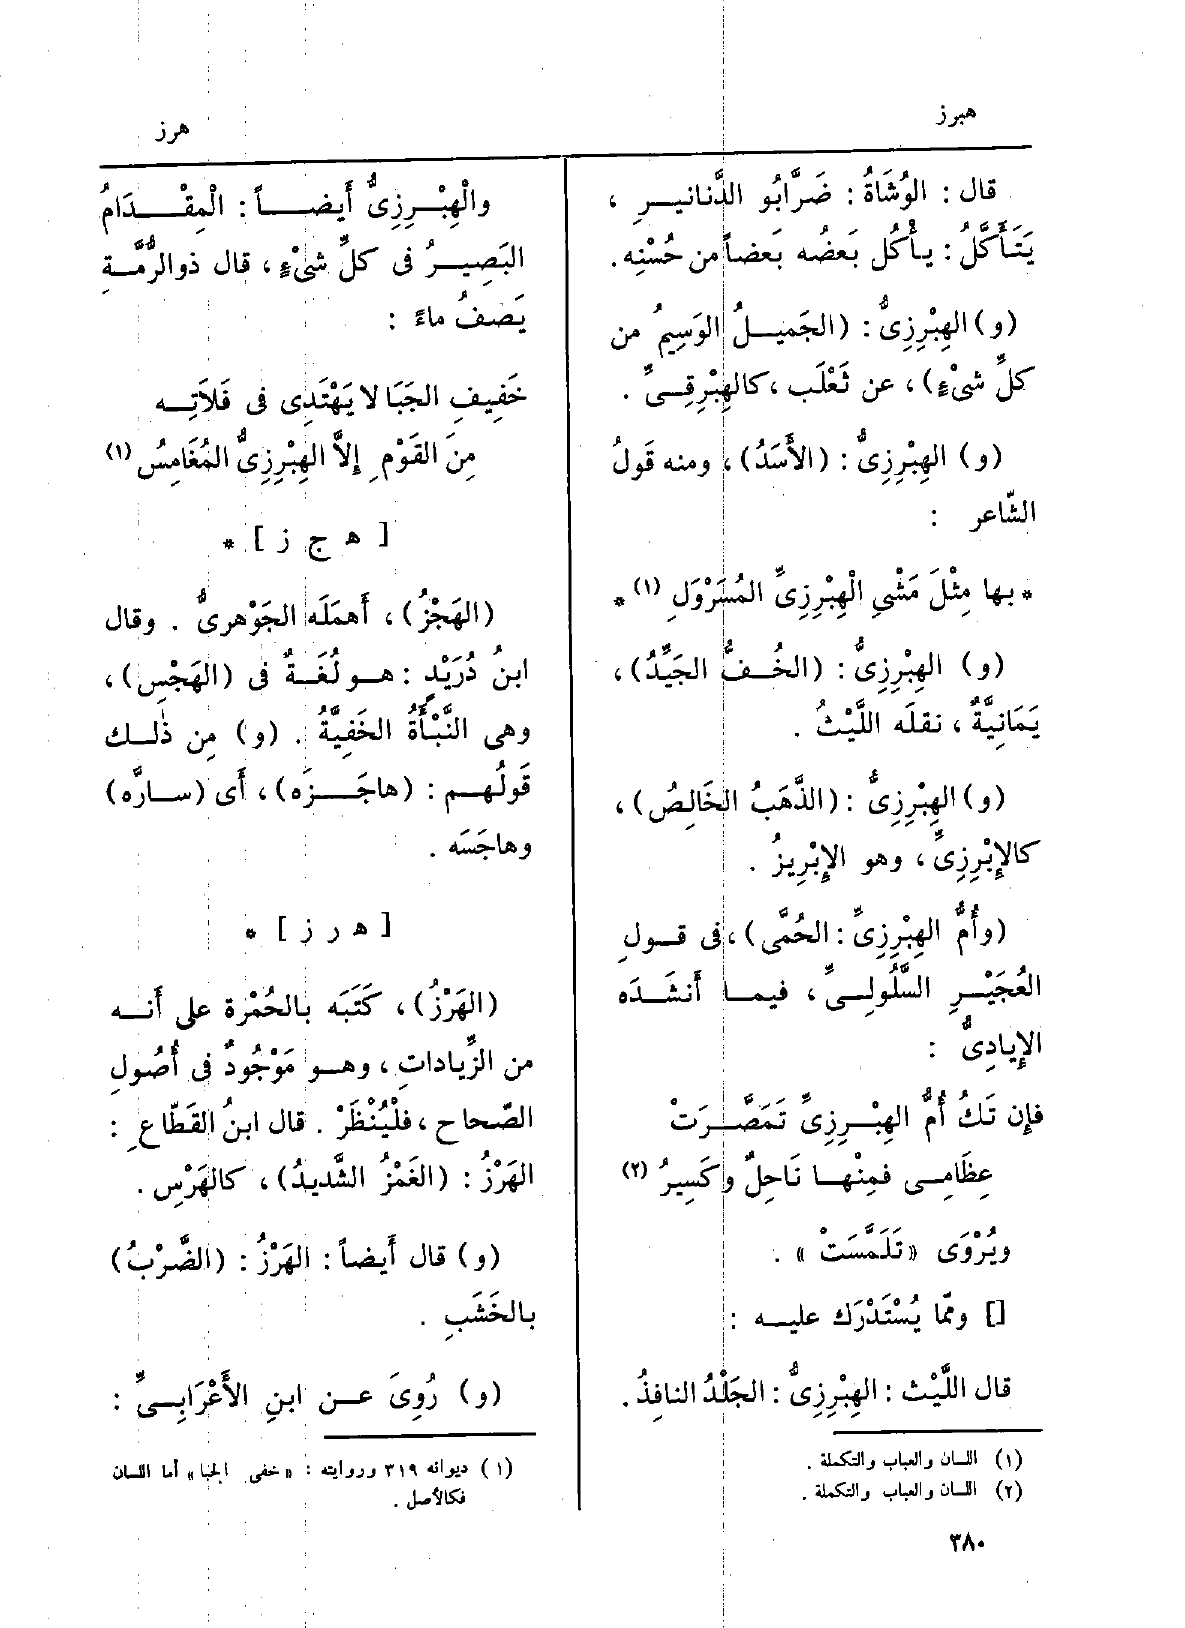 هبرز
هرز
قال : الوُشَاةُ : ضَرَّابُو الدَّنانيرِ ،
يَتَأَكَّلُ : يأْكُل بَعضُه بَعضاً من حُسْنِه .
(و) الهِبْرِزِىُّ : (الجَميلُ الوَسِيمُ من
كلِّ شىْءٍ) ، عن ثَعْلَب ، كالهِبْرِقِىِّ .
(و) الهِبْرِزِىُّ : (الأَسَدُ) ، ومنه قَولُ
الشّاعر :
* بها مِثْلَ مَشْىِ الْهِبْرِزِىِّ المُسَرْوَلِ (١) *
(و) الهِبْرِزِىُّ : (الخُفُّ الجَيِّدُ) ،
يَمَانِيَّةٌ ، نقلَه اللَّيْثُ .
(و) الهِبْرِزِىُّ : (الذَّهَبُ الخَالِصُ) ،
كالإِبْرِزِىِّ ، وهو الإِبْرِيزُ .
(وأُمُّ الهِبْرِزِىِّ : الحُمَّى) ، فى قولِ
العُجَيْرِ السَّلُولِىِّ ، فيما أَنشَدَه
الإِيادِىُّ :
فإِن تَكُ أُمُّ الهِبْرِزِىِّ تَمَصَّرَتْ
عِظَامِى فمِنْها نَاحِلٌ وكَسِيرُ (٢)
ويُرْوَى «تَلَمَّسَتْ» .
[] وممّا يُسْتَدْرَك عليه :
قال اللَّيْث : الهِبْرِزِىُّ : الجَلْدُ النافِذُ .
(١) اللسان والعباب والتكملة .
(٢) اللسان والعباب والتكملة .
والْهِبْرِزِىُّ أَيضاً : الْمِقْدَامُ
البَصِيرُ فى كلِّ شىْءٍ ، قال ذو الرُّمَّةِ
يَصَفُ ماءً :
خَفِيفِ الجَبَا لا يَهْتَدِى فى فَلاَتِه
مِنَ القَوْمِ إِلاَّ الهِبْرِزِىُّ المُغَامِسُ (١)
[ ه ج ز ] *
(الهَجْزُ) ، أَهمَلَه الجَوْهرىُّ . وقال
ابنُ دُرَيْدٍ : هو لُغَةٌ فى (الهَجْسِ) ،
وهى النَّبْأَةُ الخَفِيَّةُ . (و) مِن ذٰلك
قَولُهم : (هاجَزَه) ، أَى (سارَّه)
وهاجَسَه .
[ ه ر ز ] *
(الهَرْزُ) ، كَتَبَه بالحُمْرة على أَنه
من الزِّيادات ، وهو مَوْجُودٌ فى أُصُولِ
الصّحاح ، فلْيُنْظَرْ . قال ابنُ القَطّاعِ :
الهَرْزُ : (الغَمْزُ الشَّديدُ) ، كالهَرْسِ .
(و) قال أَيضاً : الهَرْزُ : (الضَّرْبُ)
بالخَشَبِ .
(و) رُوِىَ عن ابنِ الأَعْرَابِىِّ :
(١) ديوانه ٣١٩ وروايته : «خفى الجبا» أما اللسان
فكالأصل .
٣٨٠